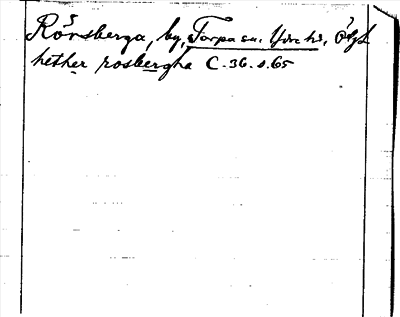 Rörsberga, by, Torpa sn. Ydre hd, Ögl
hether rosbergha C. 36. s. 65